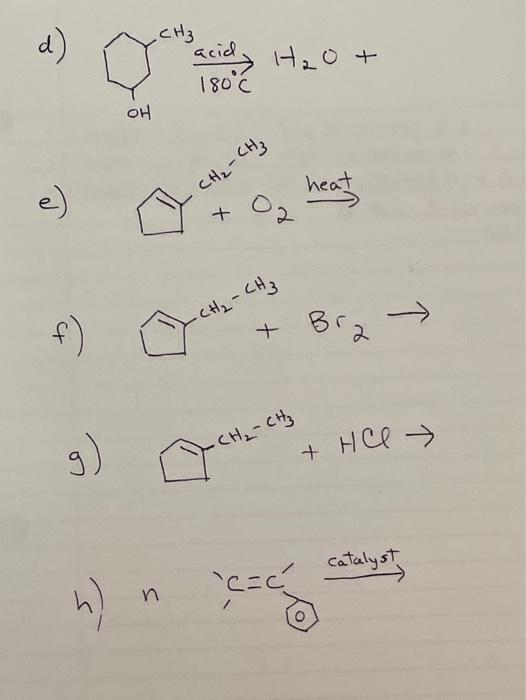 d) CH3 acid H2O +
180°C
OH
e) CH2-CH3 + O2 heat
f) CH2-CH3 + Br2 →
g) CH2-CH3 + HCl →
h) n C=C catalyst